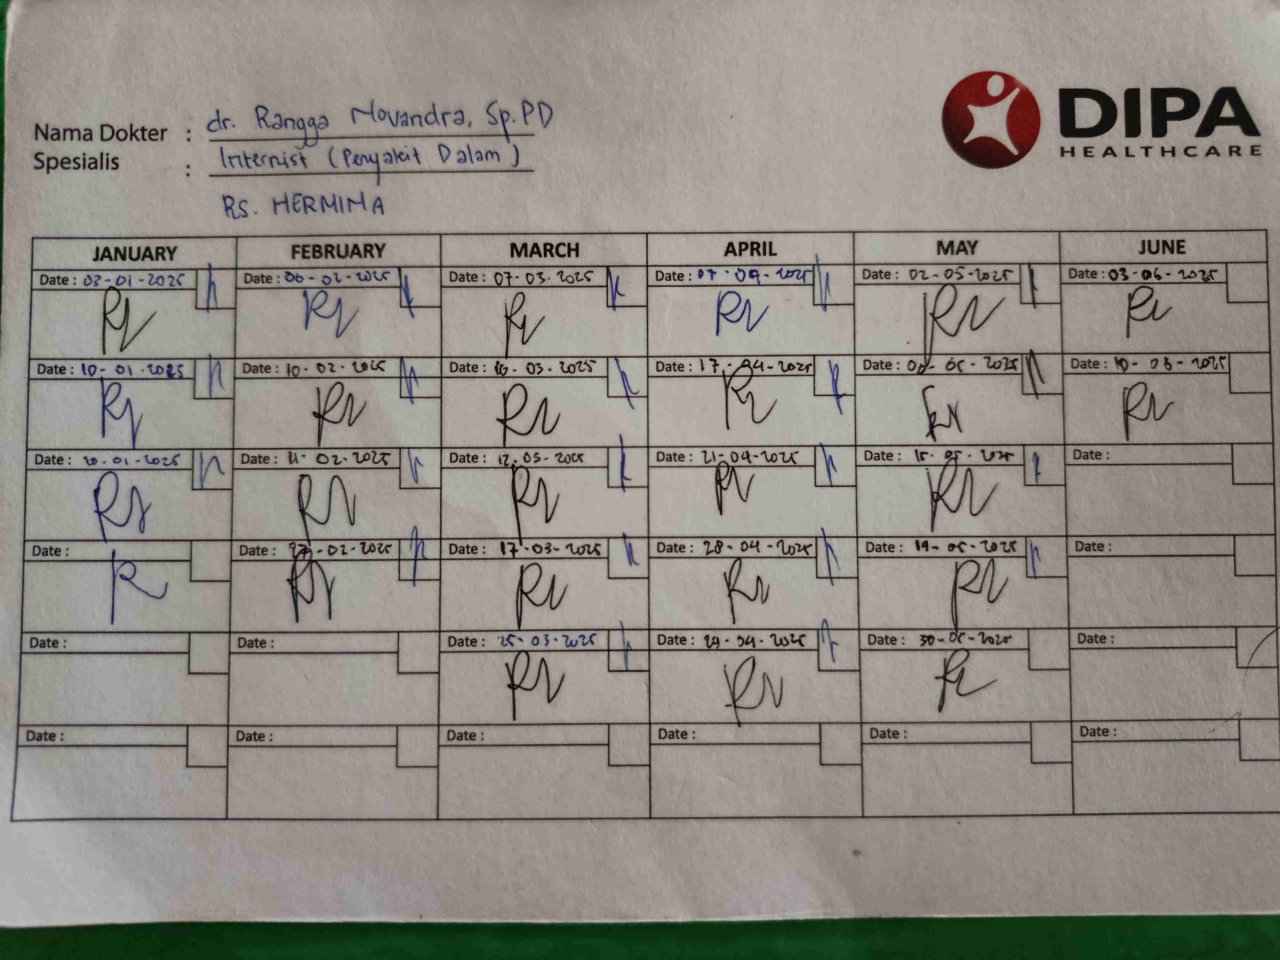 DIPA
HEALTHCARE
Nama Dokter : dr. Rangga Novandra, Sp.PD
Spesialis : Internist (Penyakit Dalam)
RS. HERMINA
JANUARY FEBRUARY MARCH APRIL MAY JUNE
Date : 03-01-2025 Date : 06-02-2025 Date : 07-03-2025 Date : 07-04-2025 Date : 02-05-2025 Date : 03-06-2025
Date : 10-01-2025 Date : 10-02-2025 Date : 10-03-2025 Date : 17-04-2025 Date : -05-2025 Date : 10-03-2025
Date : 20-01-2025 Date : 11-02-2025 Date : 12-03-2025 Date : 21-04-2025 Date : 15-05-2025 Date :
Date : Date : 27-02-2025 Date : 17-03-2025 Date : 28-04-2025 Date : 19-05-2025 Date :
Date : Date : Date : 25-03-2025 Date : 29-04-2025 Date : 30-05-2025 Date :
Date : Date : Date : Date : Date : Date :